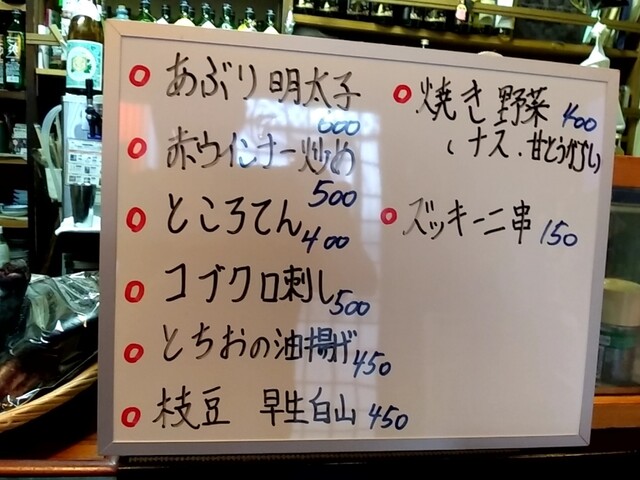 あぶり明太子
600
赤ウインナー炒め
500
ところてん 400
コブクロ刺し 500
とちおの油揚げ 450
枝豆 早生白山 450
焼き野菜 400
(ナス、甘とうがらし)
ズッキーニ串 150